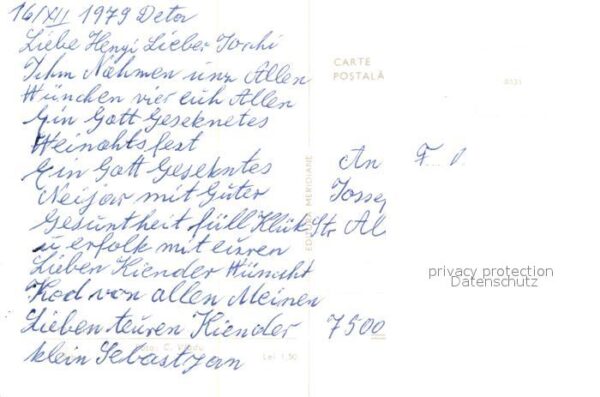 16/XII 1979 Deta
Liebe Henyi Lieber Joschi
Ihm Nahmen unz Allen
Wünchen vier euh Allen
Ein Gott Geseknetes
Weinachtsfest
Ein Gott Gesekntes
Neijar mit Guter
Gesuntheit füll Klük
u erfolk mit euren
Lieben Kiender Wünscht
Kod von allen Meinen
Lieben teuren Kiender
klein Sebastzan
CARTE
POȘTALĂ
An F
Str Al
7500
MERIDIANE
Lei 1,50
privacy protection
Datenschutz